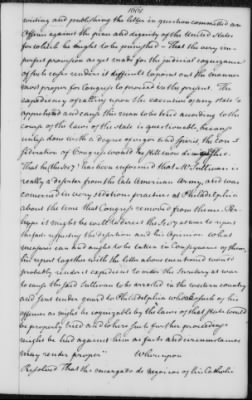 writing and publishing the letter in question committed an
offence against the peace and dignity of the United States
for which he ought to be punished – That the very im-
perfect provision as yet made for the judicial cognizance
of such cases renders it difficult to point out the manner
most proper for Congress to proceed in the present. The
expediency of calling upon the executive of any state to
apprehend and cause the man to be tried according to the
course of the laws of the state is questionable, because
unless done with a degree of vigor and spirit the Con
federation of Congress would by still more
That he (the Secy) has been informed that Mr Sullivan
really a deserter from the late American Army, and was
concerned in very seditious practices at Philadelphia
about the time that Congress removed from thence. Per
haps it might be well to direct the Secy at war to report
the facts respecting the desertion and his Opinion what
measures can and ought to be taken in Consequence of them,
his report together with the letter above mentioned would
probably render it expedient to order the Secretary at war
to cause the said Sullivan to be arrested in the western country
and sent under guard to Philadelphia where such of his
offences as might be cognizable by the laws of that state would
be properly tried and where such further proceedings
might be had against him as facts and circumstances
may render proper" Whereupon
Resolved That the encargado de negocios of his Catholic